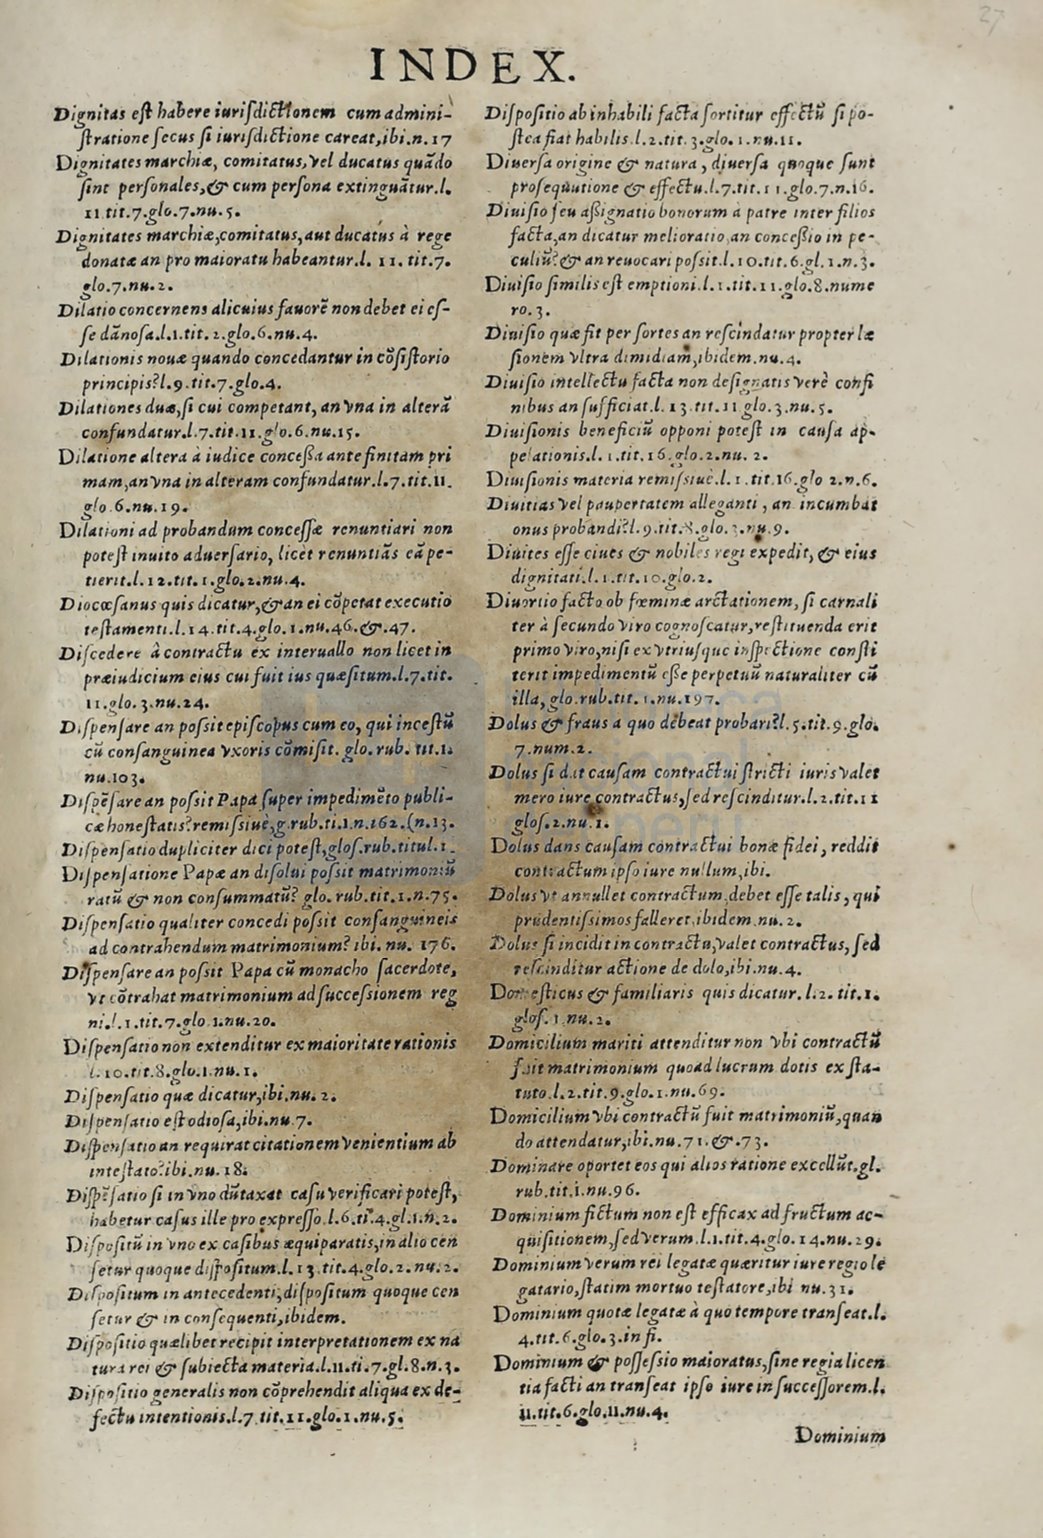 27
INDEX.
Dignitas est habere iurisdictionem cum admini-
stratione secus si iurisdictione careat,ibi.n.17
Dignitates marchiæ, comitatus,vel ducatus quãdo
sint personales,& cum persona extinguãtur.l.
11.tit.7.glo.7.nu.5.
Dignitates marchiæ,comitatus,aut ducatus à rege
donatæ an pro maioratu habeantur.l. 11. tit.7.
glo.7.nu.2.
Dilatio concernens alicuius fauorẽ non debet ei es-
se dãnosa.l.1.tit. 2.glo.6.nu.4.
Dilationis nouæ quando concedantur in cõsistorio
principis?l.9.tit.7.glo.4.
Dilationes duæ,si cui competant, an vna in alterã
confundatur.l.7.tit.11.glo.6.nu.15.
Dilatione altera à iudice concessa ante finitam pri
mam,an vna in alteram confundatur.l.7.tit.11.
glo.6.nu.19.
Dilationi ad probandum concessæ renuntiari non
potest inuito aduersario, licet renuntiãs eã pe-
tierit.l.12.tit.1.glo.2.nu.4.
Diocœsanus quis dicatur,& an ei cõpetat executio
testamenti.l.14.tit.4.glo.1.nu.46.&.47.
Discedere à contractu ex interuallo non licet in
præiudicium eius cui fuit ius quæsitum.l.7.tit.
11.glo.3.nu.24.
Dispensare an possit episcopus cum eo, qui incestũ
cũ consanguinea vxoris cõmisit. glo.rub. tit.1.
nu.103.
Dispẽsare an possit Papa super impedimẽto publi-
cæ honestatis?remissiuè,g.rub.ti.1.n.162.(n.13.
Dispensatio dupliciter dici potest,glos.rub.titul.1.
Dispensatione Papæ an disolui possit matrimoniũ
ratũ & non consummatũ? glo.rub.tit.1.n.75.
Dispensatio qualiter concedi possit consanguineis
ad contrahendum matrimonium? ibi. nu. 176.
Dispensare an possit Papa cũ monacho sacerdote,
vt cõtrahat matrimonium ad successionem reg
ni.l.1.tit.7.glo.1.nu.20.
Dispensatio non extenditur ex maioritate rationis
l.10.tit.8.glo.1.nu.1.
Dispensatio quæ dicatur,ibi.nu.2.
Dispensatio est odiosa,ibi.nu.7.
Dispensatio an requirat citationem venientium ab
intestato?ibi.nu.18.
Dispẽsatio si in vno dũtaxat casu verificari potest,
habetur casus ille pro expresso.l.6.ti.4.gl.1.n.2.
Dispositũ in vno ex casibus æquiparatis,in alio cen
setur quoque dispositum.l.13.tit.4.glo.2.nu.2.
Dispositum in antecedenti,dispositum quoque cen
setur & in consequenti,ibidem.
Dispositio quælibet recipit interpretationem ex na
tura rei & subiecta materia.l.11.ti.7.gl.8.n.3.
Dispositio generalis non cõprehendit aliqua ex de-
fectu intentionis.l.7.tit.11.glo.1.nu.5.
Dispositio ab inhabili facta sortitur effectũ si po-
stea fiat habilis.l.2.tit.3.glo.1.nu.11.
Diuersa origine & natura, diuersa quoque sunt
prosequutione & effectu.l.7.tit.11.glo.7.n.16.
Diuisio seu assignatio bonorum à patre inter filios
facta,an dicatur melioratio,an concessio in pe-
culiũ?& an reuocari possit.l.10.tit.6.gl.1.n.3.
Diuisio similis est emptioni.l.1.tit.11.glo.8.nume
ro.3.
Diuisio quæ fit per sortes an rescindatur propter læ
sionem vltra dimidiam,ibidem.nu.4.
Diuisio intellectu facta non designatis verè confi
nibus an sufficiat.l.13.tit.11.glo.3.nu.5.
Diuisionis beneficiũ opponi potest in causa ap-
pelationis.l.1.tit.16.glo.2.nu.2.
Diuisionis materia remissiuè.l.1.tit.16.glo 2.n.6.
Diuitias vel paupertatem alleganti, an incumbat
onus probandi?l.9.tit.8.glo.3.nu.9.
Diuites esse ciues & nobiles regi expedit, & eius
dignitati.l.1.tit.10.glo.2.
Diuortio facto ob fœminæ arctationem, si carnali
ter à secundo viro cognoscatur,restituenda erit
primo viro,nisi ex vtriusque inspectione consti
terit impedimentũ esse perpetuũ naturaliter cũ
illa,glo.rub.tit.1.nu.197.
Dolus & fraus a quo debeat probari?l.5.tit.9.glo.
7.num.2.
Dolus si dat causam contractui stricti iuris valet
mero iure contractus,sed rescinditur.l.2.tit.11
glos.2.nu.1.
Dolus dans causam contractui bonæ fidei, reddit
contractum ipso iure nullum,ibi.
Dolus vt annullet contractum,debet esse talis, qui
prudentissimos falleret,ibidem.nu.2.
Dolus si incidit in contractu,valet contractus, sed
rescinditur actione de dolo,ibi.nu.4.
Domesticus & familiaris quis dicatur.l.2. tit.1.
glos.1.nu.2.
Domicilium mariti attenditur non vbi contractũ
fuit matrimonium quoad lucrum dotis ex sta-
tuto.l.2.tit.9.glo.1.nu.69.
Domicilium vbi contractũ fuit matrimoniũ,quan
do attendatur,ibi.nu.71.&.73.
Dominare oportet eos qui alios ratione excellũt.gl.
rub.tit.1.nu.96.
Dominium fictum non est efficax ad fructum ac-
quisitionem,sed verum.l.1.tit.4.glo.14.nu.29.
Dominium verum rei legatæ quæritur iure regio le
gatario,statim mortuo testatore,ibi nu.31.
Dominium quotæ legatæ à quo tempore transeat.l.
4.tit.6.glo.3.in fi.
Dominium & possessio maioratus,sine regia licen
tia facti an transeat ipso iure in successorem.l.
11.tit.6.glo.11.nu.4.
Dominium